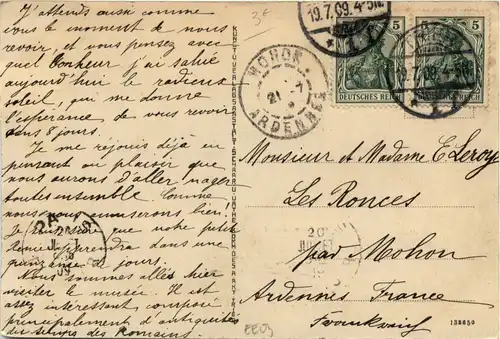 J'attends aussi comme
vous le moment de nous
revoir, et vous pensez avec
quel bonheur j'ai salué
aujourd'hui le radieux
soleil, qui me donne
l'espérance de vous revoir
dans 8 jours.
Je me réjouis déjà en
pensant au plaisir que
nous aurons d'aller nager
tous ensemble. Comme
nous nous amuserons bien!
Je pense que notre petite
apprendra dans une
quinzaine de jours.
Nous sommes allés hier
visiter le musée. Il est
assez intéressant, composé
principalement d'antiquités
du temps des Romains.
3e
EE03
19.7.09. 4-5N.
MOHON
21 -7
ARDENNES
5 5
DEUTSCHES REICH
19.7.09. 4-5
Monsieur et Madame E. Leroy
Les Ronces
par Mohon
Ardennes France
Frankreich
20
JUIL
138850